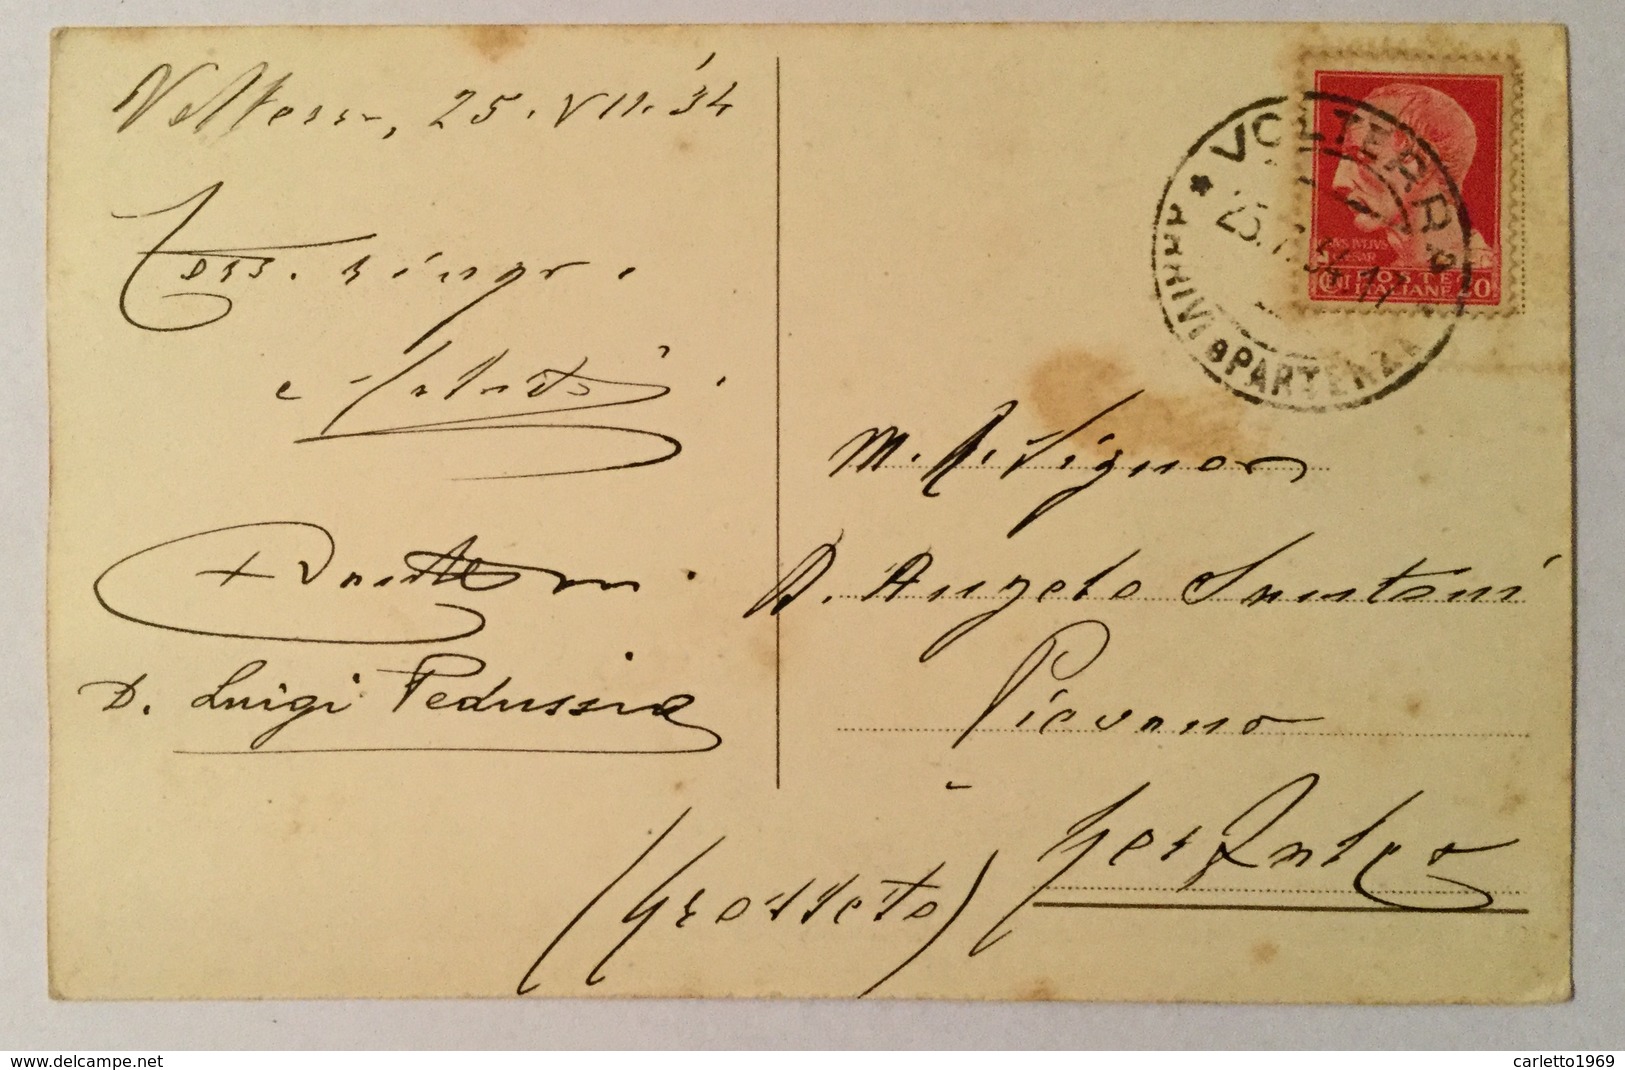 Volterra, 25.VII.34
Ossequi
e saluti.
D. Luigi Pedussia
VOLTERRA
25.7.34.17
ARRIVI e PARTENZE
IVLIVS
POSTE
ITALIANE
20
M. R. Signor
D. Angelo Santoni
Pievano
Gerfalco
(Grosseto)
www.delcampe.net
carletto1969